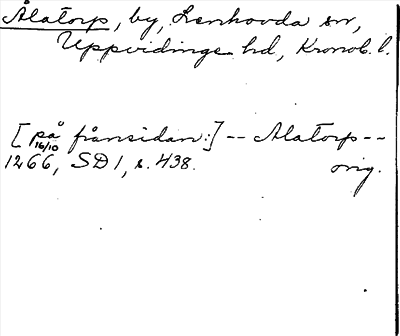 Ålatorp, by, Lenhovda sn,
Uppvidinge hd, Kronob. l.
[på frånsidan:] -- Alatorp --
16/10
1266, SD 1, s. 438. orig.